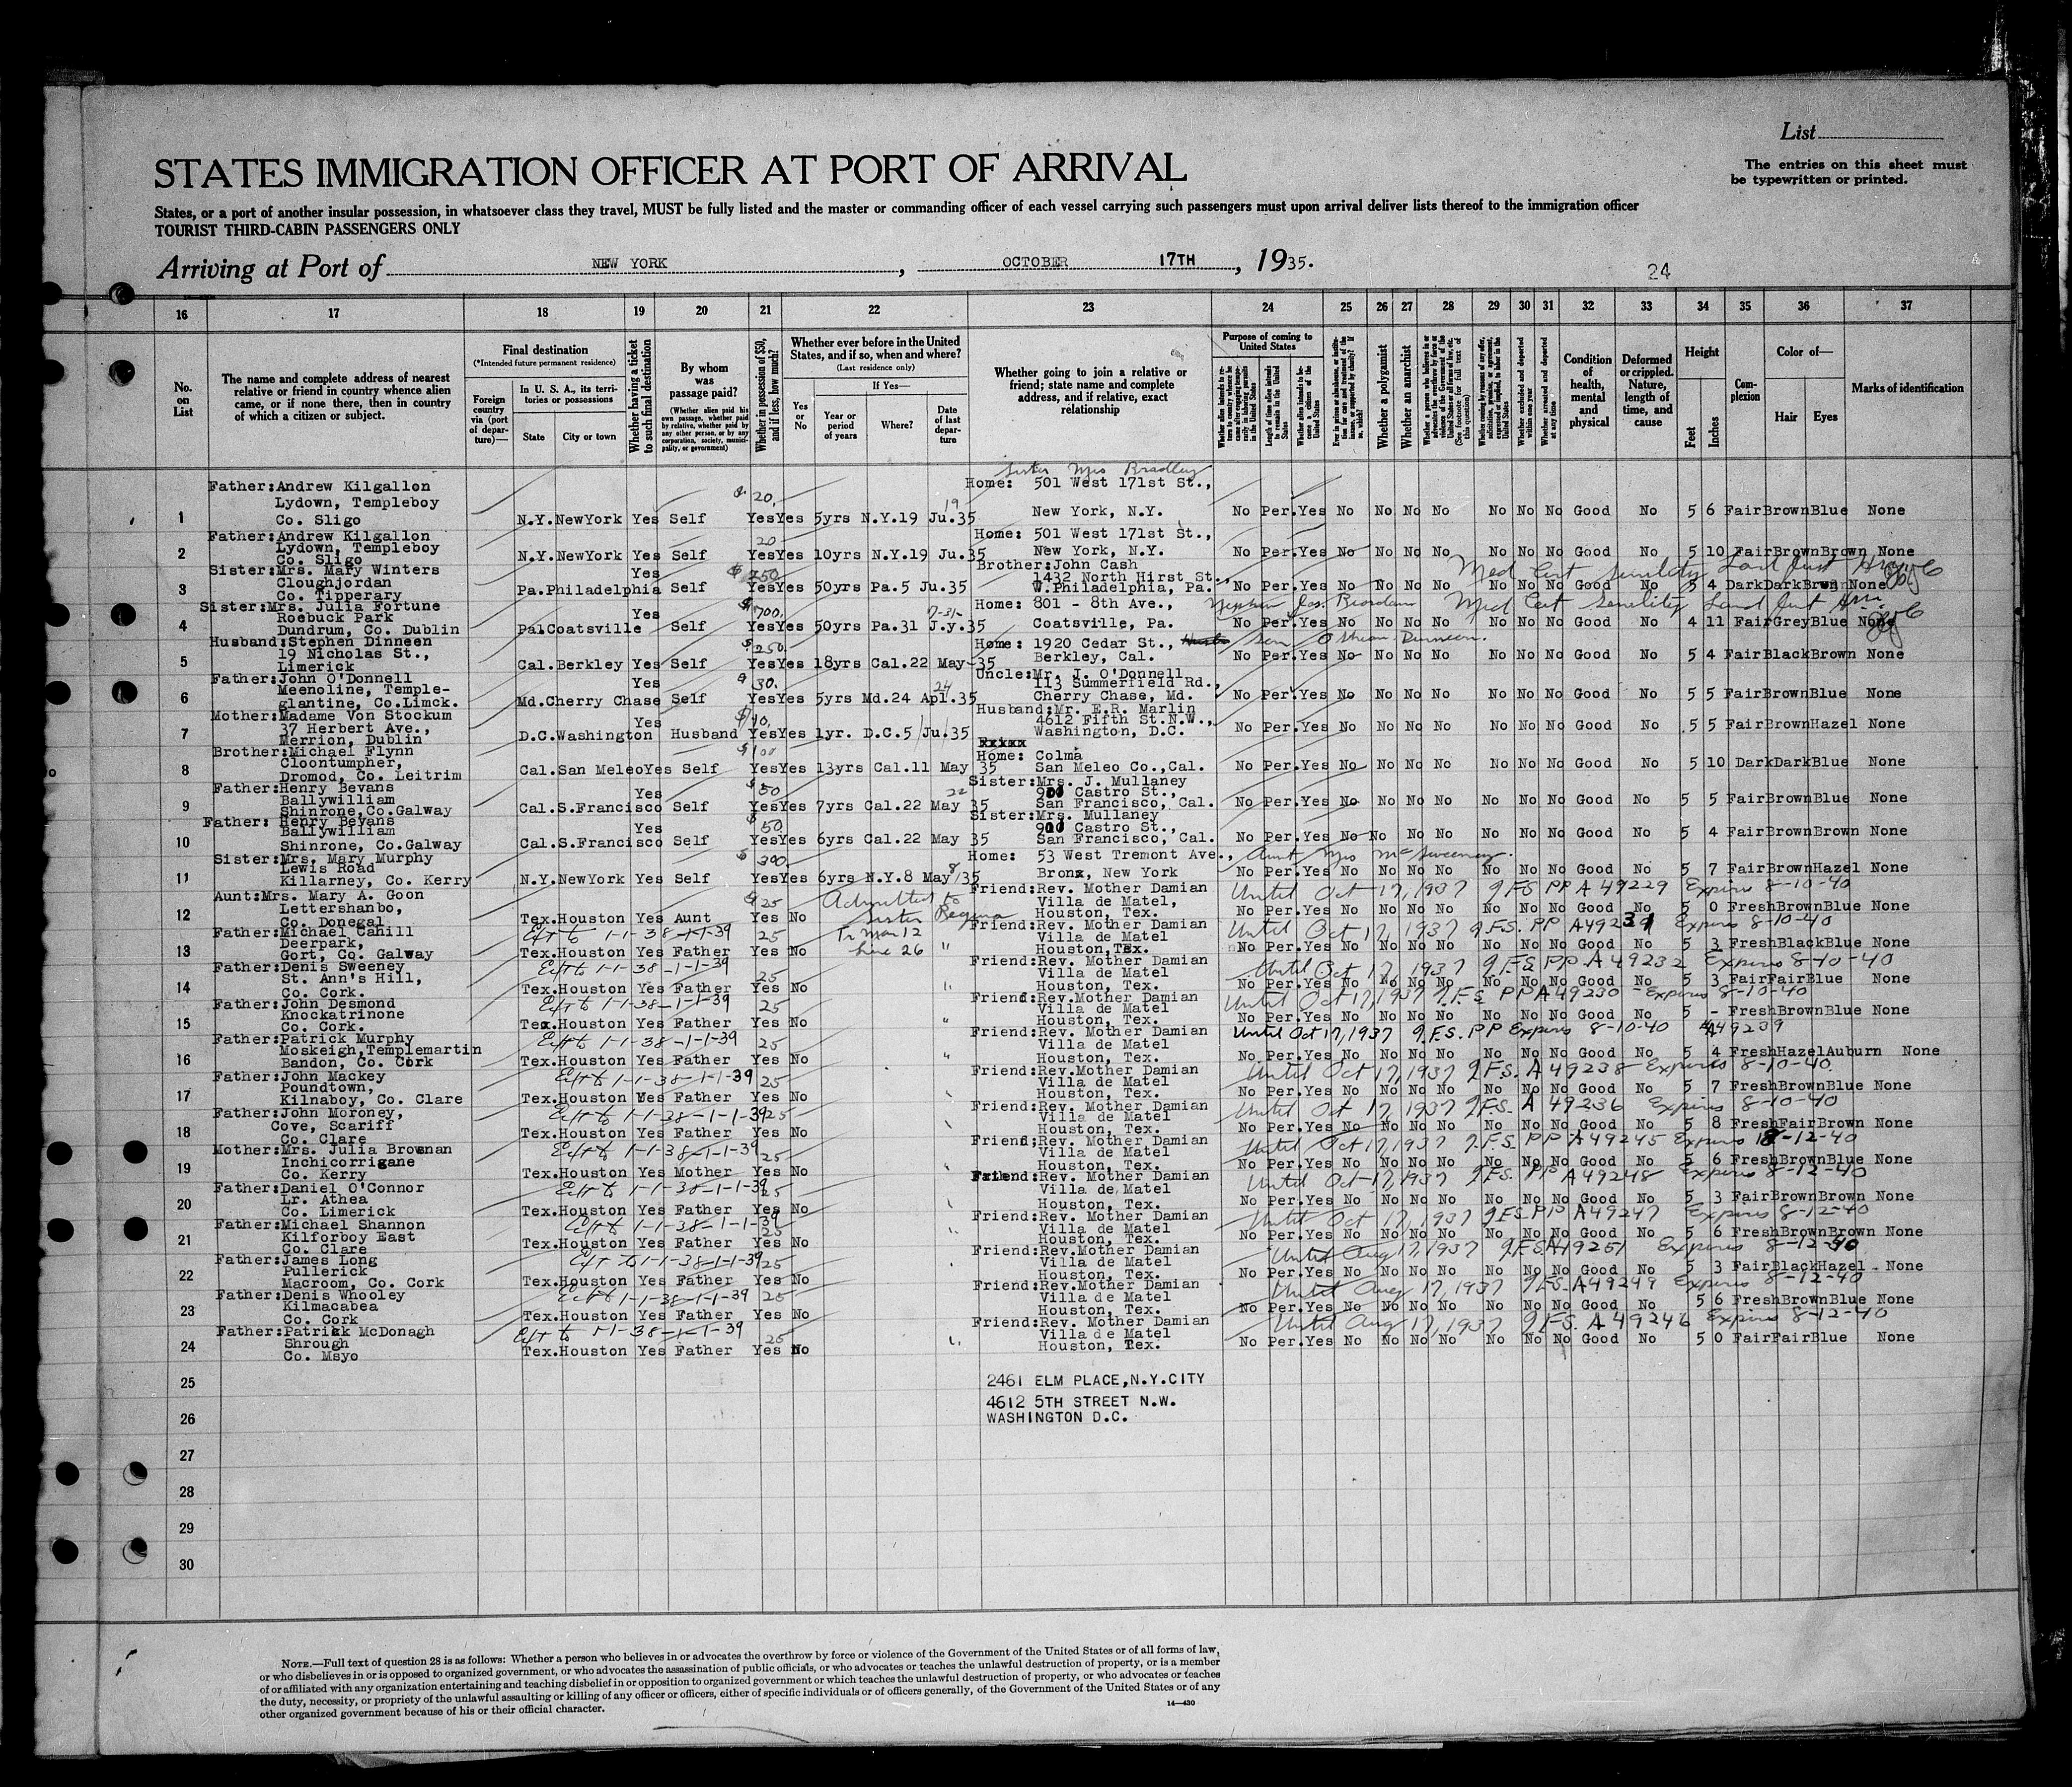 List
The entries on this sheet must
be typewritten or printed.
STATES IMMIGRATION OFFICER AT PORT OF ARRIVAL
States, or a port of another insular possession, in whatsoever class they travel, MUST be fully listed and the master or commanding officer of each vessel carrying such passengers must upon arrival deliver lists thereof to the immigration officer
TOURIST THIRD-CABIN PASSENGERS ONLY
Arriving at Port of NEW YORK, OCTOBER 17TH, 1935.
24
16 17 18 19 20 21 22 23 24 25 26 27 28 29 30 31 32 33 34 35 36 37
No. on List
The name and complete address of nearest relative or friend in country whence alien came, or if none there, then in country of which a citizen or subject.
Final destination
(*Intended future permanent residence)
Foreign country via (port of departure)—
In U. S. A., its territories or possessions
State City or town
Whether having a ticket to such final destination
By whom was passage paid?
(Whether alien paid his own passage, whether paid by relative, whether paid by any other person, or by any corporation, society, municipality, or government)
Whether in possession of $50, and if less, how much?
Whether ever before in the United States, and if so, when and where?
(Last residence only)
If Yes—
Yes or No
Year or period of years
Where?
Date of last departure
Whether going to join a relative or friend; state name and complete address, and if relative, exact relationship
Purpose of coming to United States
Whether a polygamist
Whether an anarchist
Whether excluded and deported within one year
Whether arrested and deported at any time
Condition of health, mental and physical
Deformed or crippled. Nature, length of time, and cause
Height
Feet Inches
Complexion
Color of—
Hair Eyes
Marks of identification
Sister Mrs Bradley
Father:Andrew Kilgallon $ 20. Home: 501 West 171st St.,
Lydown, Templeboy 19
1 Co. Sligo N.Y.NewYork Yes Self YesYes 5yrs N.Y.19 Ju.35 New York, N.Y. No Per.Yes No No No No No No No Good No 5 6 FairBrownBlue None
Father:Andrew Kilgallon 20 Home: 501 West 171st St.,
2 Lydown, Templeboy N.Y.NewYork Yes Self YesYes 10yrs N.Y.19 Ju.35 New York, N.Y. No Per.Yes No No No No No No No Good No 5 10 FairBrownBrown None
Co. Sligo
Sister:Mrs. Mary Winters Yes $ 750 Brother:John Cash Med Cert Senility
3 Cloughjordan Pa.Philadelphia Self YesYes 50yrs Pa.5 Ju.35 1432 North Hirst St., No Per.Yes No No No No No No No Good No 5 4 DarkDarkBrown None
Co. Tipperary W.Philadelphia, Pa.
Sister:Mrs. Julia Fortune Yes $ 700. 7-31- Home: 801 - 8th Ave., Nephew Jas. Riordan Med Cert Senility
4 Roebuck Park Pa.Coatsville Self YesYes 50yrs Pa.31 J.y.35 Coatsville, Pa. No Per.Yes No No No No No No No Good No 4 11 FairGreyBlue None
Dundrum, Co. Dublin
Husband:Stephen Dinneen $ 250 Home: 1920 Cedar St., Son
5 19 Nicholas St., Cal.Berkley Yes Self YesYes 18yrs Cal.22 May-35 Berkley, Cal. No Per.Yes No No No No No No No Good No 5 4 FairBlackBrown None
Limerick
Father:John O'Donnell Yes 30. 24 Uncle:Mr. J. O'Donnell
6 Meenoline, Temple- Md.Cherry Chase Self YesYes 5yrs Md.24 Apl.35 113 Summerfield Rd., No Per.Yes No No No No No No No Good No 5 5 FairBrownBlue None
glantine, Co.Limck. Cherry Chase, Md.
Mother:Madame Von Stockum Yes $ 10. Husband:Mr. E.R. Marlin
7 37 Herbert Ave., D.C.Washington Husband YesYes 1yr. D.C.5 Ju.35 4612 Fifth St.N.W., No Per.Yes No No No No No No No Good No 5 5 FairBrownHazel None
Merrion, Dublin Washington, D.C.
Brother:Michael Flynn $ 100 Home: Colma
8 Cloontumpher, Cal.San MeleoYes Self YesYes 13yrs Cal.11 May 35 San Meleo Co.,Cal. No Per.Yes No No No No No No No Good No 5 10 DarkDarkBlue None
Dromod, Co. Leitrim
Father:Henry Bevans Yes $ 50 22 Sister:Mrs. J. Mullaney
9 Ballywilliam Cal.S.Francisco Self YesYes 7yrs Cal.22 May 35 Castro St., No Per.Yes No No No No No No No Good No 5 5 FairBrownBlue None
Shinrone,Co.Galway San Francisco, Cal.
Father: Henry Bevans Yes 50 Sister:Mrs. Mullaney
10 Ballywilliam Cal.S.Francisco Self YesYes 6yrs Cal.22 May 35 Castro St., No Per.Yes No No No No No No No Good No 5 4 FairBrownBrown None
Shinrone, Co.Galway San Francisco, Cal.
Sister:Mrs. Mary Murphy $ 300. 8 Home: 53 West Tremont Ave., Aunt Mrs McSweeney.
11 Lewis Road N.Y.NewYork Yes Self YesYes 6yrs N.Y.8 May 35 Bronx, New York No Per.Yes No No No No No No No Good No 5 7 FairBrownHazel None
Killarney, Co. Kerry
Aunt:Mrs. Mary A. Goon $ 25 Admitted to Sister Regina Friend:Rev. Mother Damian Until Oct 17, 1937 J.F.S PP A 49229 Expires 8-10-40
12 Lettershanbo, Tex.Houston Yes Aunt Yes No Villa de Matel, No Per.Yes No No No No No No No Good No 5 0 FreshBrownBlue None
Co. Donegal Houston, Tex.
Father:Michael Cahill Ext to 1-1-38-1-1-39 25 Friend:Rev. Mother Damian Until Oct 17, 1937 J.F.S. PP A49231 Expires 8-10-40
13 Deerpark, Tex.Houston Yes Father Yes No line 26 " Villa de Matel No Per.Yes No No No No No No No Good No 5 3 FreshBlackBlue None
Gort, Co. Galway Houston,Tex.
Father:Denis Sweeney Ext to 1-1-38-1-1-39 25 Friend:Rev. Mother Damian Until Oct 17, 1937 J.F.S PP A 49232 Expires 8-10-40
14 St. Ann's Hill, Tex.Houston Yes Father Yes No " Villa de Matel No Per.Yes No No No No No No No Good No 5 3 FairFairBlue None
Co. Cork. Houston, Tex.
Father:John Desmond Ext to 1-1-38-1-1-39 25 Friend:Rev.Mother Damian Until Oct 17, 1937 J.F.S PP A 49230 Expires 8-10-40
15 Knockatrinone Tex.Houston Yes Father Yes No " Villa de Matel No Per.Yes No No No No No No No Good No 5 - FreshBrownBlue None
Co. Cork. Houston, Tex.
Father:Patrick Murphy Ext to 1-1-38-1-1-39 25 Friend:Rev. Mother Damian Until Oct 17, 1937 J.F.S. PP Expires 8-10-40 A49239
16 Moskeigh,Templemartin Tex.Houston Yes Father Yes No " Villa de Matel No Per.Yes No No No No No No No Good No 5 4 FreshHazelAuburn None
Bandon, Co. Cork Houston, Tex.
Father:John Mackey Ext to 1-1-38-1-1-39 25 Friend:Rev.Mother Damian Until Oct 17, 1937 J.F.S. A 49238 Expires 8-10-40
17 Poundtown, Tex.Houston Yes Father Yes No Villa de Matel No Per.Yes No No No No No No No Good No 5 7 FreshBrownBlue None
Kilnaboy, Co. Clare Houston, Tex.
Father:John Moroney, Ext to 1-1-38-1-1-39 25 Friend:Rev. Mother Damian Until Oct 17, 1937 J.F.S. A 49236 Expires 8-10-40
18 Cove, Scariff Tex.Houston Yes Father Yes No Villa de Matel No Per.Yes No No No No No No No Good No 5 8 FreshFairBrown None
Co. Clare Houston, Tex.
Mother:Mrs. Julia Brownan Ext to 1-1-38-1-1-39 25 Friend;Rev. Mother Damian Until Oct 17, 1937 J.F.S. PP A49245 Expires 8-12-40
19 Inchicorrigane Tex.Houston Yes Mother Yes No Villa de Matel No Per.Yes No No No No No No No Good No 5 6 FreshBrownBlue None
Co. Kerry Houston, Tex.
Father:Daniel O'Connor Ext to 1-1-38-1-1-39 25 Friend:Rev. Mother Damian Until Oct 17, 1937 J.F.S. PP A49248 Expires 8-12-40
20 Lr. Athea Tex.Houston Yes Father Yes No Villa de Matel No Per.Yes No No No No No No No Good No 5 3 FairBrownBrown None
Co. Limerick Houston, Tex.
Father:Michael Shannon Ext to 1-1-38-1-1-39 25 Friend:Rev. Mother Damian Until Oct 17, 1937 J.F.S PP A49247 Expires 8-12-40
21 Kilforboy East Tex.Houston Yes Father Yes No Villa de Matel No Per.Yes No No No No No No No Good No 5 6 FreshBrownBrown None
Co. Clare Houston, Tex.
Father:James Long Ext to 1-1-38-1-1-39 25 Friend:Rev.Mother Damian Until Aug 17, 1937 J.F.S A49251 Expires 8-12-40
22 Pullerick Tex.Houston Yes Father Yes No Villa de Matel No Per.Yes No No No No No No No Good No 5 3 FairBlackHazel None
Macroom, Co. Cork Houston, Tex.
Father:Denis Whooley Ext to 1-1-38-1-1-39 25 Friend:Rev.Mother Damian Until Aug 17, 1937 J.F.S. A49249 Expires 8-12-40
23 Kilmacabea Tex.Houston Yes Father Yes No Villa de Matel No Per.Yes No No No No No No No Good No 5 6 FreshBrownBlue None
Co. Cork Houston, Tex.
Father:Patrick McDonagh Ext to 1-1-38-1-1-39 25 Friend:Rev. Mother Damian Until Aug 17, 1937 J.F.S. A 49246 Expires 8-12-40
24 Shrough Tex.Houston Yes Father Yes No Villa de Matel No Per.Yes No No No No No No No Good No 5 0 FairFairBlue None
Co. Mayo Houston, Tex.
25 2461 ELM PLACE,N.Y.CITY
4612 5TH STREET N.W.
26 WASHINGTON D.C.
27
28
29
30
NOTE.—Full text of question 28 is as follows: Whether a person who believes in or advocates the overthrow by force or violence of the Government of the United States or of all forms of law,
or who disbelieves in or is opposed to organized government, or who advocates the assassination of public officials, or who advocates or teaches the unlawful destruction of property, or is a member
of or affiliated with any organization entertaining and teaching disbelief in or opposition to organized government or which teaches the unlawful destruction of property, or who advocates or teaches
the duty, necessity, or propriety of the unlawful assaulting or killing of any officer or officers, either of specific individuals or of officers generally, of the Government of the United States or of any
other organized government because of his or their official character.
14—430